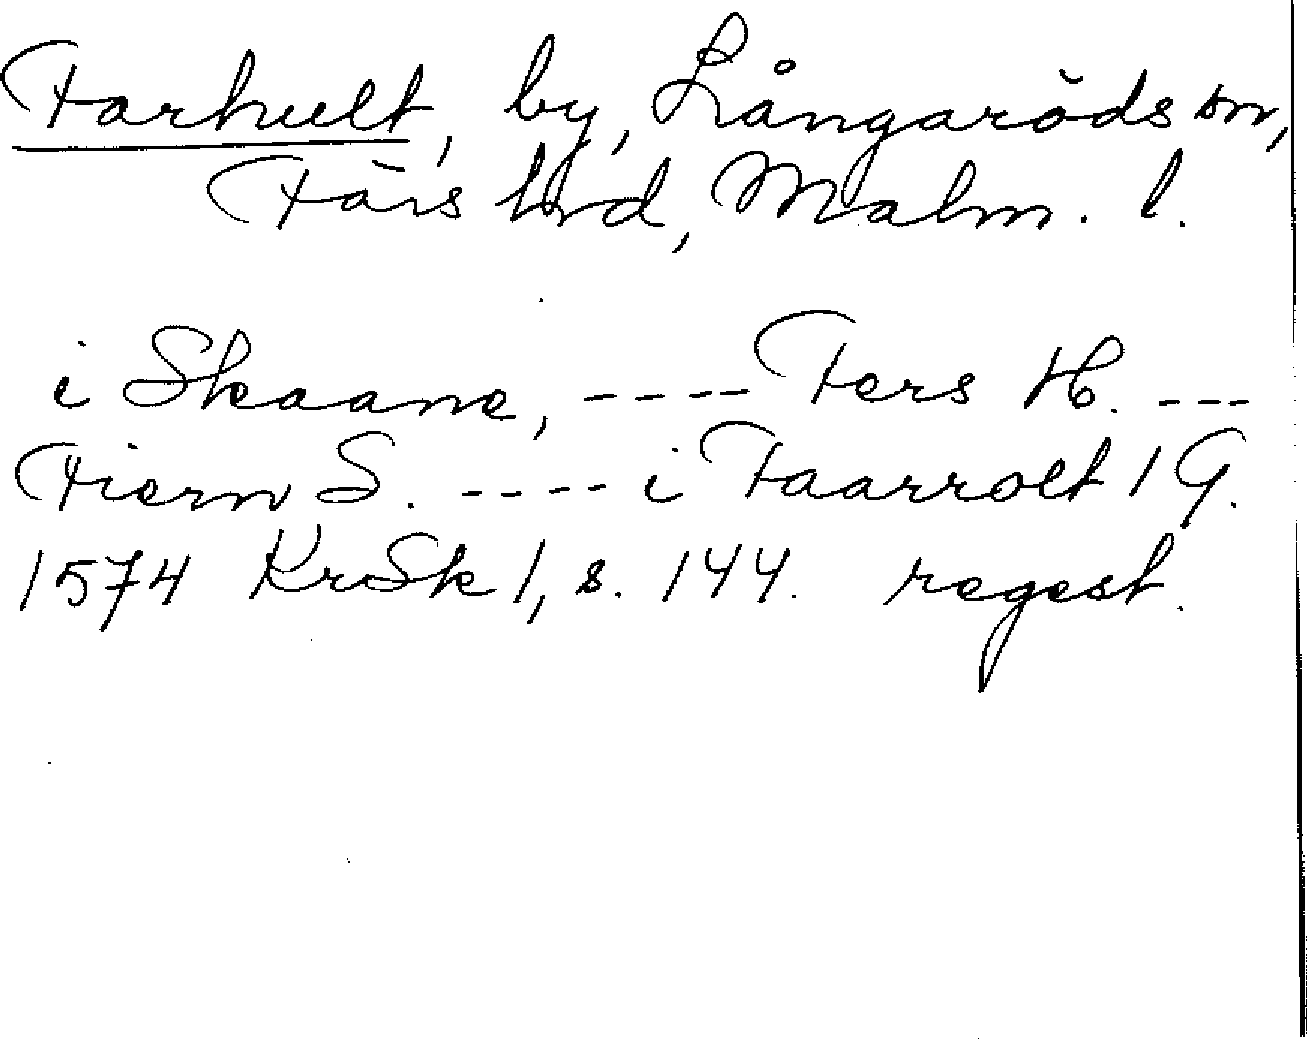 Farhult, by, Långaröds sn,
Färs hrd, Malm. l.
i Skaane, ---- Fers H. ---
Fiern S. ---- i Faarrolt 1 G.
1574 KrSk 1, s. 144. regest.